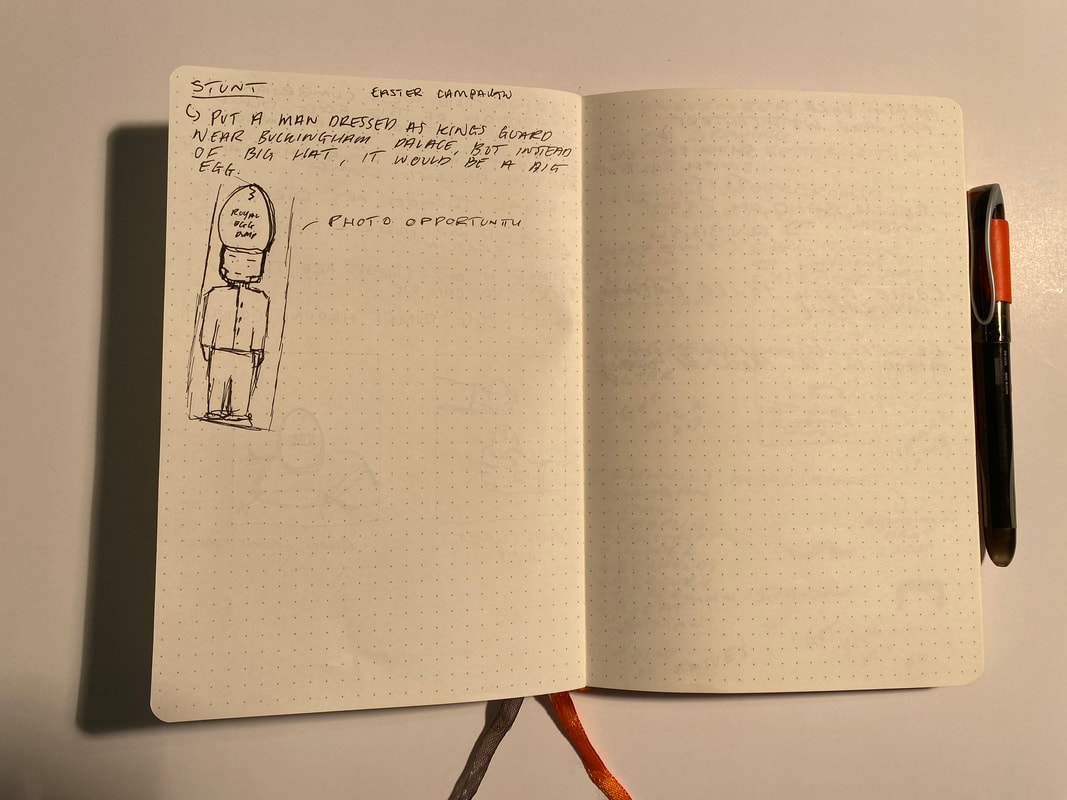 STUNT
EASTER CAMPAIGN
PUT A MAN DRESSED AS KINGS GUARD
NEAR BUCKINGHAM PALACE, BUT INSTEAD
OF BIG HAT, IT WOULD BE A BIG
EGG.
ROYAL
EGG
PHOTO OPPORTUNITY